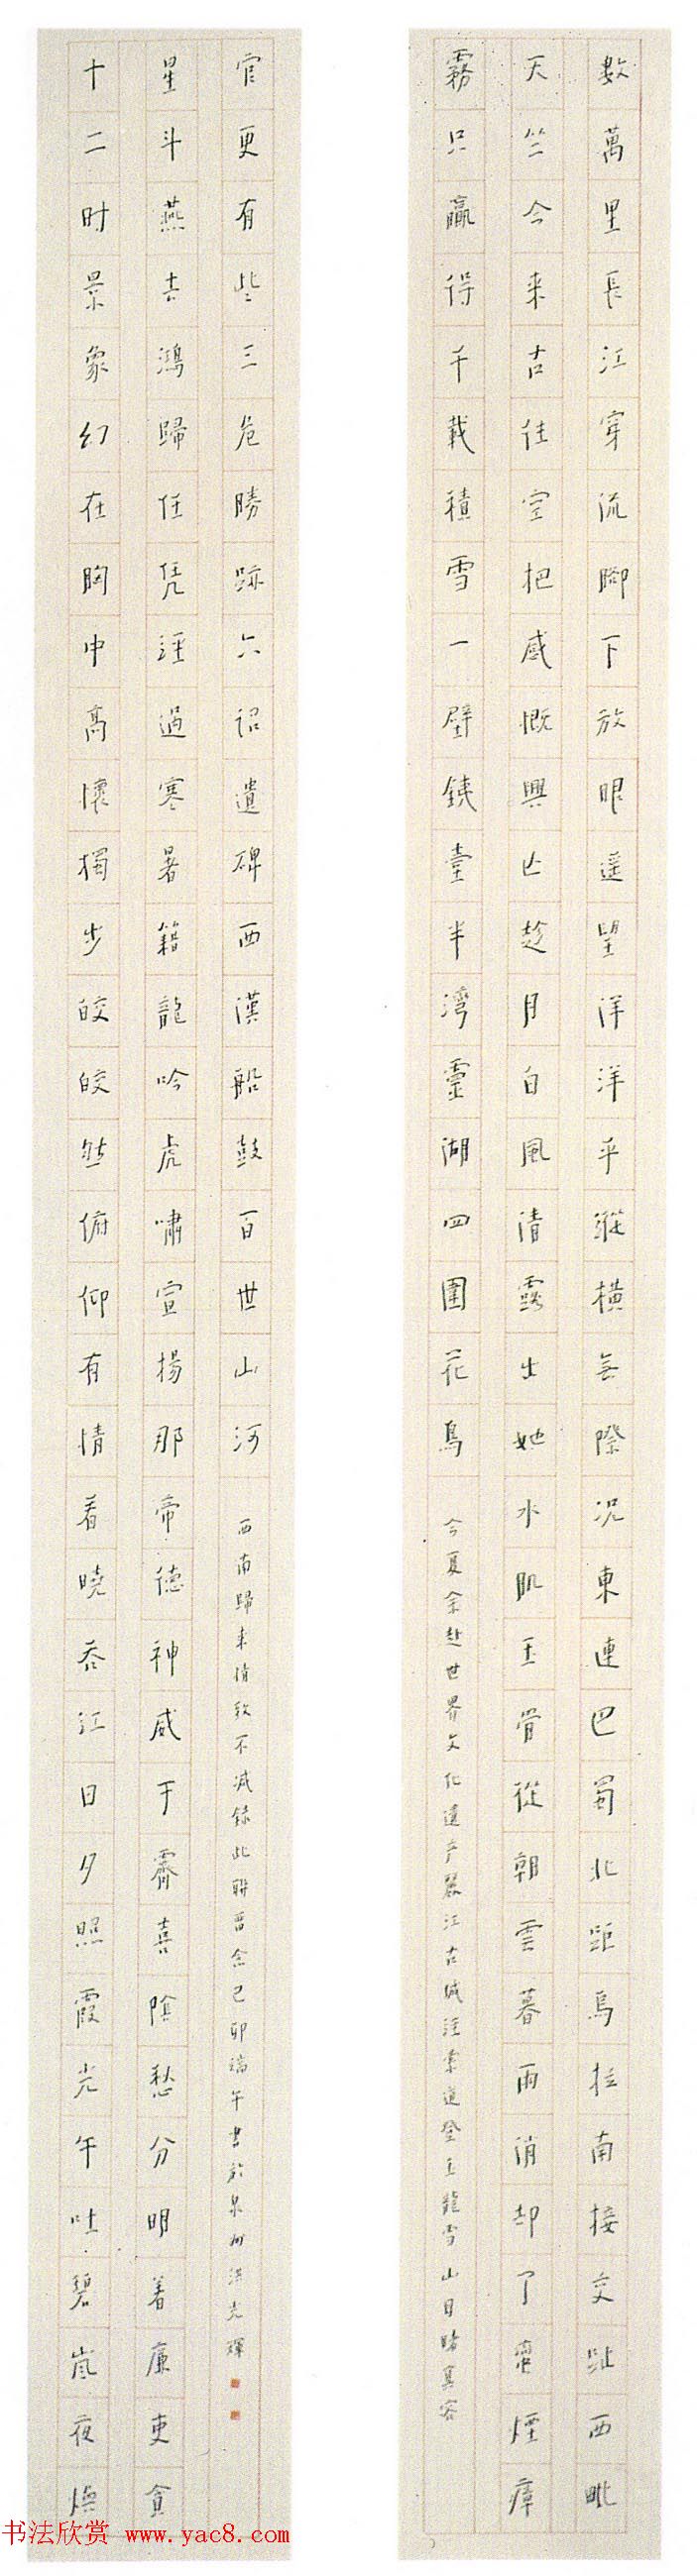 數萬里長江穿流腳下放眼遥望洋洋乎縱橫無際況東連巴蜀北距烏拉南接交趾西毗
天竺今來古往空把感慨興亡趁月白風清露出她冰肌玉骨從朝雲暮雨消却了蠻煙瘴
霧只贏得千載積雪一壁銕臺半灣靈湖四圍花鳥
今夏余赴世界文化遺产麗江古城経索道登玉龍雪山目睹真容
十二时景象幻在胸中高懷獨步皎皎然俯仰有情看曉吞江日夕照霞光午吐碧嵐夜焕
星斗燕去鴻歸任凭経過寒暑籍龍吟虎嘯宣揚那帝德神威于霽喜陰愁分明着廉吏貪
官更有些三危勝跡六詔遺碑西漢船鼓百世山河
西南歸来情致不減録此聯畱念己卯端午書於泉州洪光輝
书法欣赏 www.yac8.com